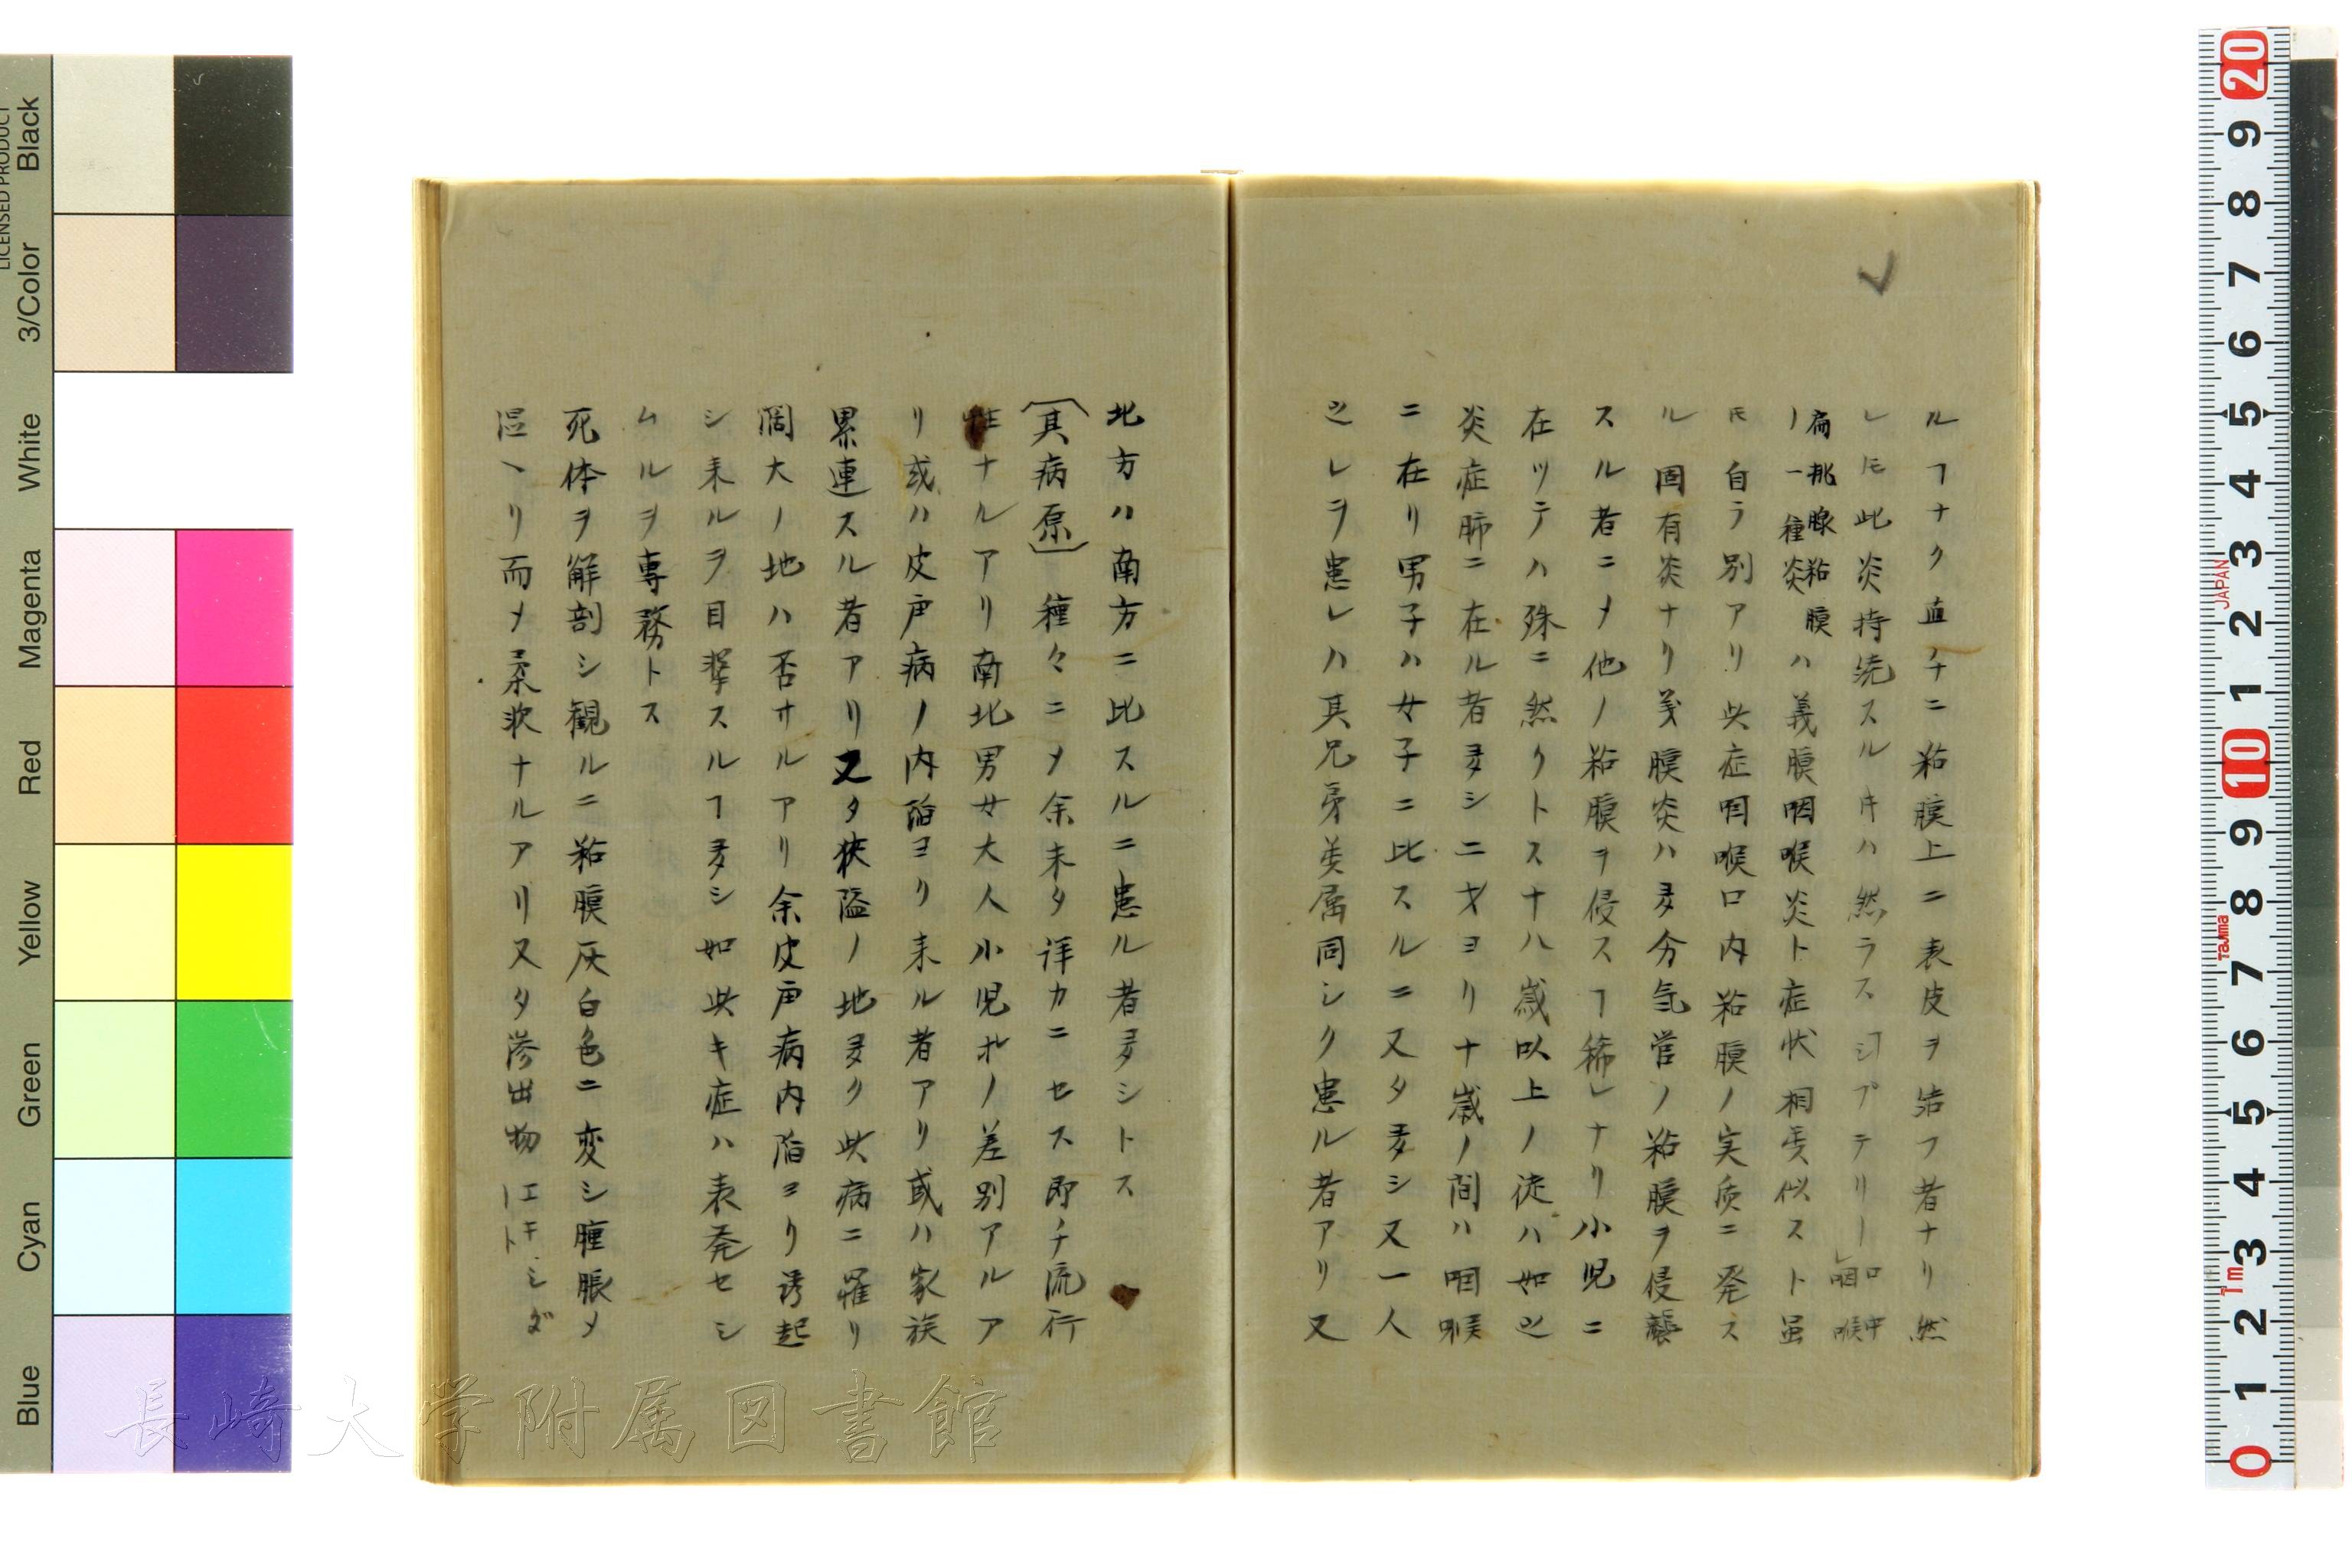 ルヿナク直チニ粘膜上ニ表皮ヲ結フ者ナリ然
レ𪜈此炎持続スルキハ然ラスヂプテリー口中咽喉
扁桃腺粘膜
ノ一種炎ハ義膜咽喉炎ト症状相类似スト虽
𪜈自ラ別アリ此症咽喉口内粘膜ノ実质ニ発ス
ル固有炎ナリ義膜炎ハ多分気管ノ粘膜ヲ侵襲
スル者ニメ他ノ粘膜ヲ侵スヿ稀レナリ小児ニ
在ツテハ殊ニ然クトス十八歳以上ノ徒ハ如之
炎症肺ニ在ル者多シニ才ヨリ十歳ノ间ハ咽喉
ニ在リ男子ハ女子ニ比スルニ又タ多シ又一人
之レヲ患レハ其兄弟美属同シク患ル者アリ又
北方ハ南方ニ比スルニ患ル者多シトス
〔其病原〕種々ニメ余未タ詳カニセス即チ流行
性ナルアリ南北男女大人小児ホノ差別アルア
リ或ハ皮戸病ノ内陥ヨリ来ル者アリ或ハ家族
累連スル者アリ又タ狭隘ノ地多ク此病ニ罹リ
濶大ノ地ハ否サルアリ余皮戸病内陥ヨリ誘起
シ来ルヲ目撃スルヿ多シ如此キ症ハ表発セシ
ムルヲ専務トス
死体ヲ解剖シ観ルニ粘膜灰白色ニ変シ腫脹メ
湿ヘリ而メ柔軟ナルアリ又タ滲出物エキシダート
長崎大学附属図書館
LICENSED PRODUCT
Black
3/Color
White
Magenta
Red
Yellow
Green
Cyan
Blue
20
9
8
7
6
5
4
3
2
1
10
9
8
7
6
5
4
3
2
1
0
JAPAN
Tajima
1m